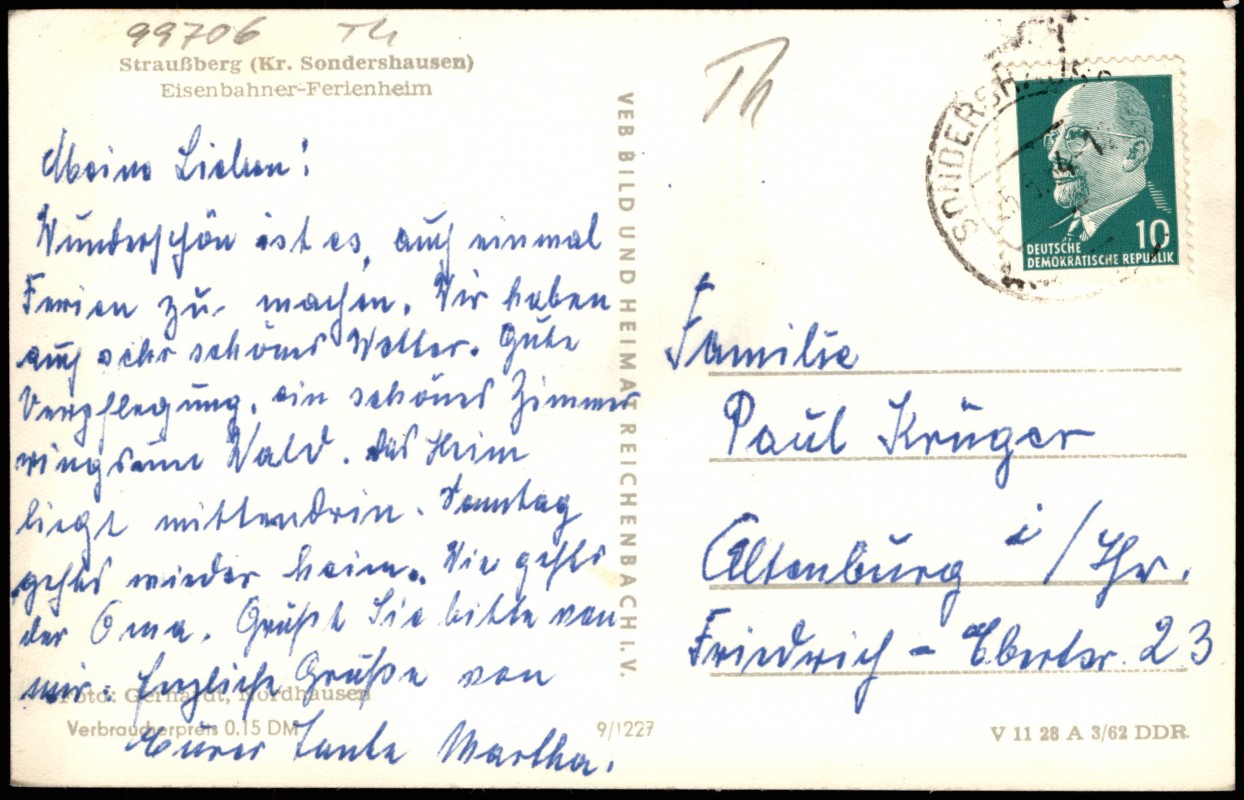 99706 Th
Straußberg (Kr. Sondershausen)
Eisenbahner-Ferienheim
Meine Lieben!
Wunderschön ist es, auch einmal
Ferien zu machen. Wir haben
auch sehr schönes Wetter. Gute
Verpflegung, ein schönes Zimmer
ringsum Wald. Das Heim
liegt mittendrin. Sonntag
gehts wieder heim. Wie gehts
der Oma. Grüßt Sie bitte von
mir. Herzliche Grüße von
Eurer Tante Martha.
Foto: Gerhardt, Nordhausen
Verbraucherpreis 0.15 DM
9/1227
VEB BILD UND HEIMAT REICHENBACH I. V.
Th
SONDERSHAUSEN
10
DEUTSCHE
DEMOKRATISCHE REPUBLIK
Familie
Paul Krüger
Altenburg i/Thr.
Friedrich-Ebertstr. 23
V 11 28 A 3/62 DDR